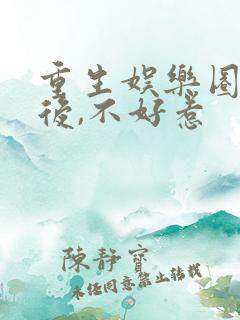 重生娛樂圈
後,不好惹
陳靜寶
未經同意禁止轉載